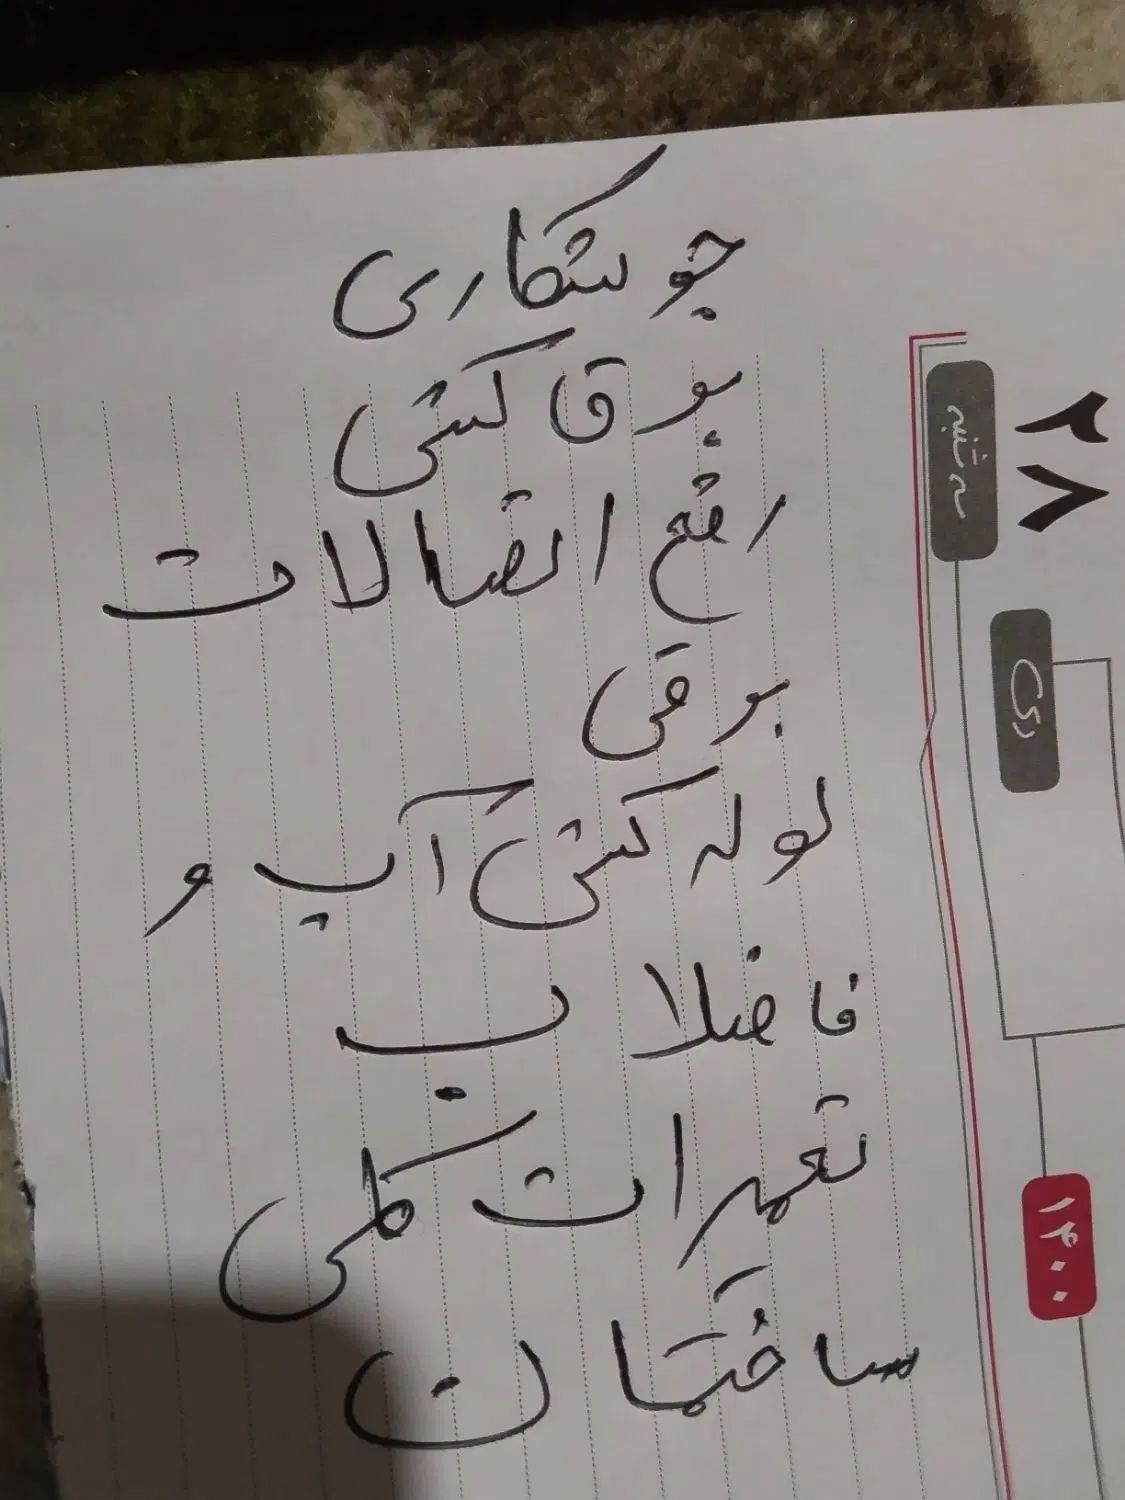 جوشکاری
برق کشی
رفع اتصالات
برقی
لوله کشی آب و
فاضلاب
تعمیرات کلی
ساختمان
۲۸
سه شنبه
دی
۱۴۰۰